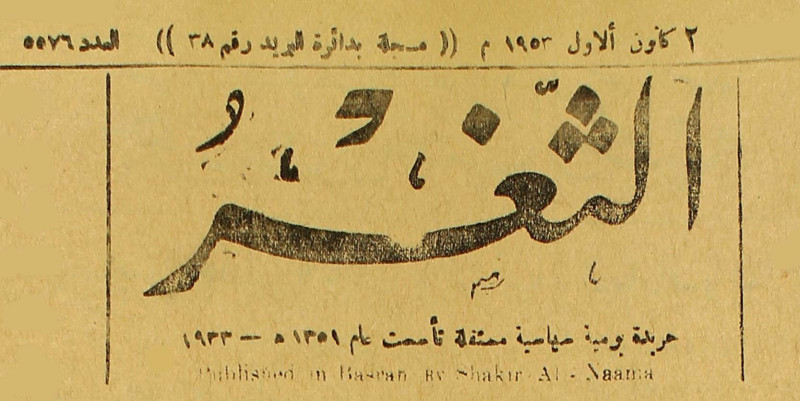 ٢ كانون ألاول ١٩٥٣ م (( مسجلة بدائرة البريد رقم ٣٨ )) العدد ٥٥٧٦
الثغر
جريدة يومية سياسية مستقلة تأسست عام ١٣٥١ ه — ١٩٣٣
Published in Basrah By Shakir Al - Naama